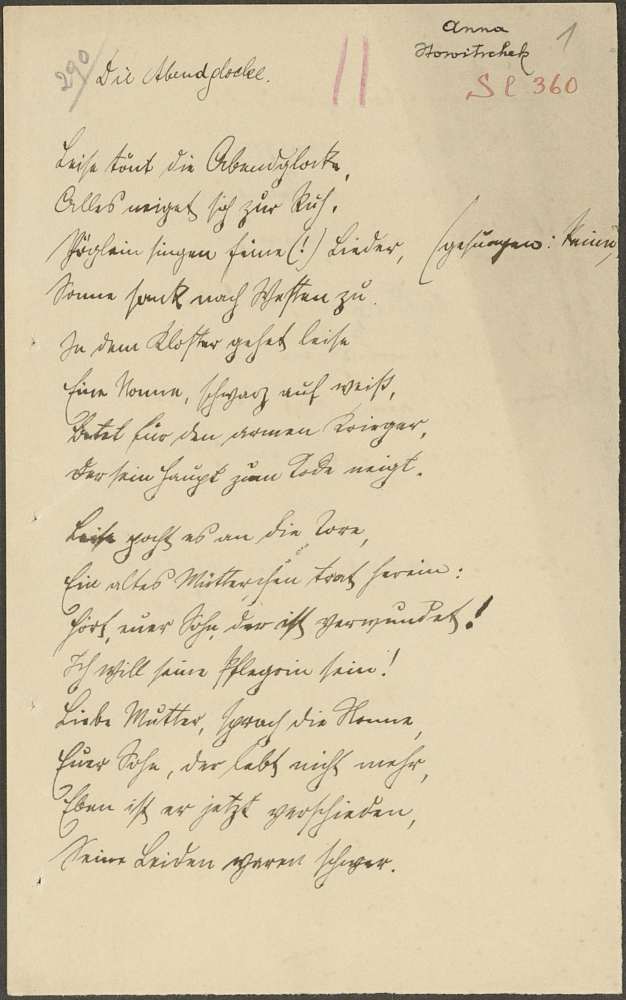 Anna
Howitschek
1
290
Die Abendglocke.
Sl 360
Leise tönt die Abendglocke,
Alles neiget sich zur Ruh.
Vöglein singen feine (!) Lieder, (gesungen:
Sonne sank nach Westen zu.
In dem Kloster gehet leise
Eine Nonne, schwarz auf weiß,
Betet für den armen Krieger,
Der sein Haupt zum Tode neigt.
Leise pocht es an die Tore,
Ein altes Mütterchen trat herein:
Hört, euer Sohn der ist verwundet!
Ich will seine Pflegrin sein!
Liebe Mutter, sprach die Nonne,
Euer Sohn, der lebt nicht mehr,
Eben ist er jetzt verschieden,
Seine Leiden waren schwer.